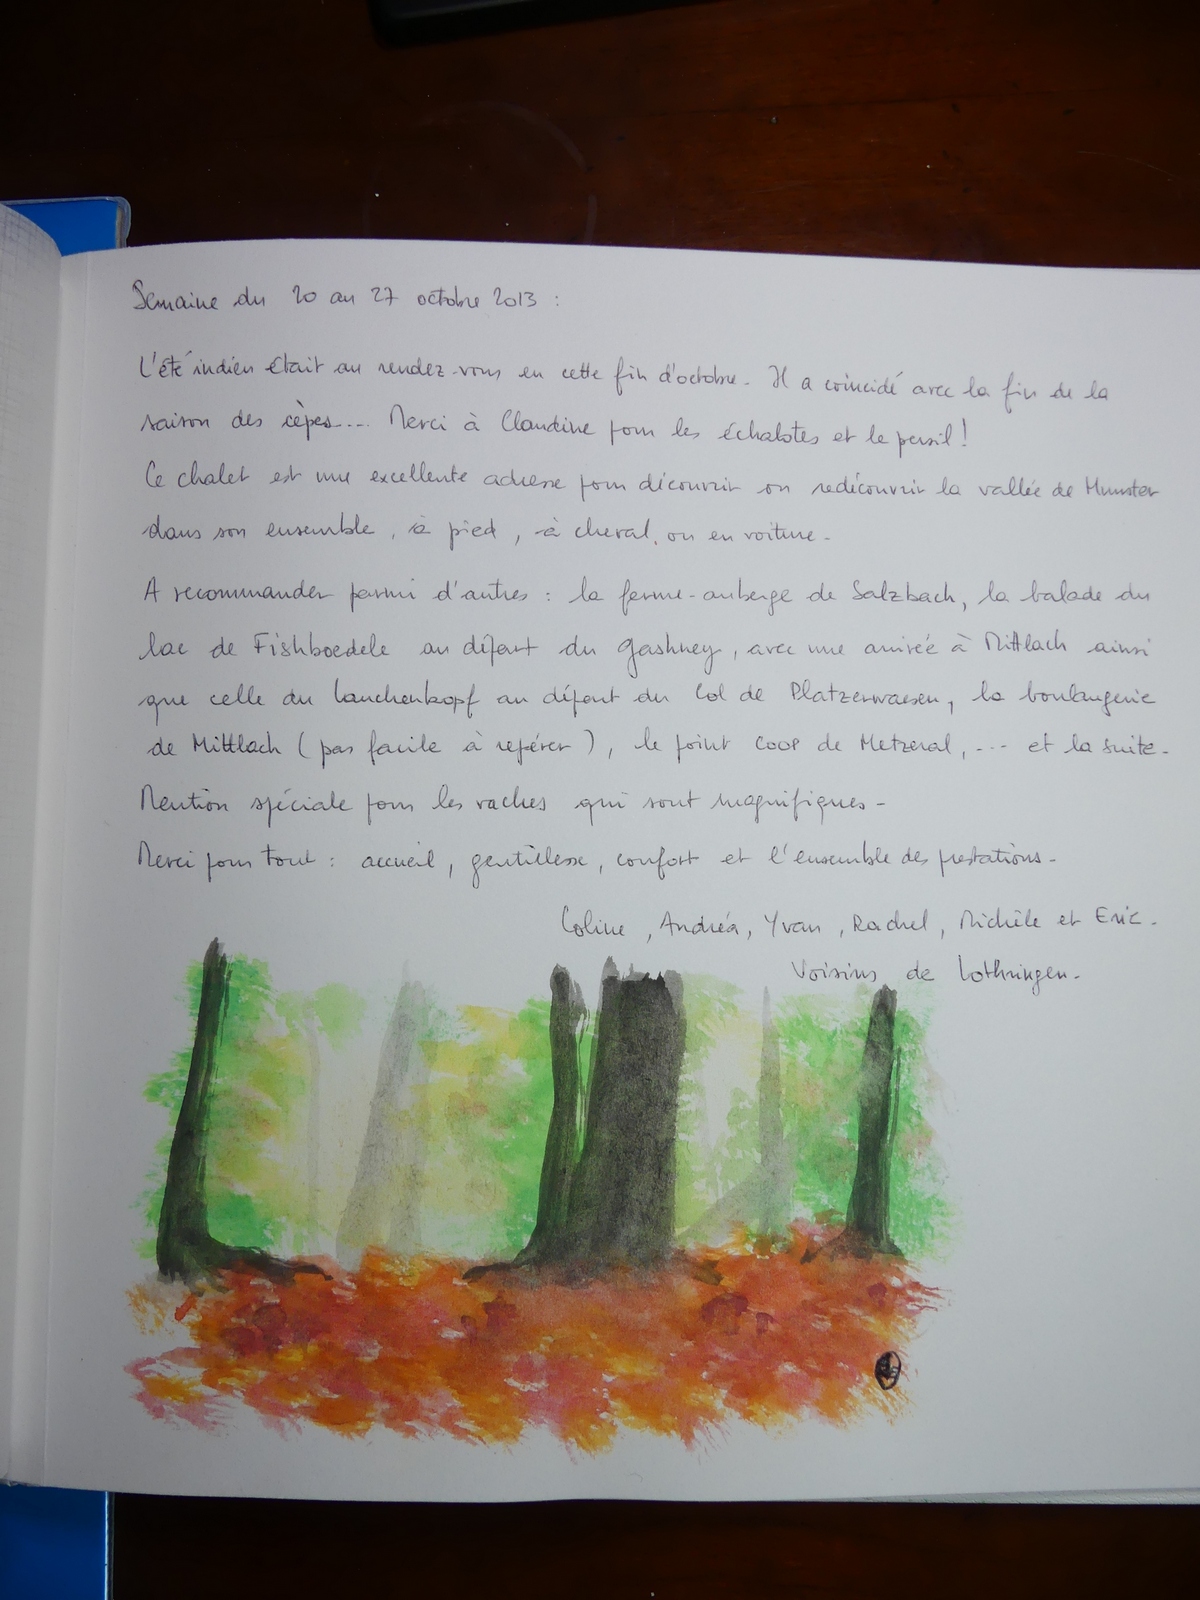 Semaine du 20 au 27 octobre 2013 :
L'été indien était au rendez-vous en cette fin d'octobre. Il a coïncidé avec la fin de la
saison des cèpes.... Merci à Claudine pour les échalotes et le persil !
Ce chalet est une excellente adresse pour découvrir ou redécouvrir la vallée de Munster
dans son ensemble, à pied, à cheval, ou en voiture.
A recommander parmi d'autres : la ferme-auberge de Salzbach, la balade du
lac de Fishboedele au départ du Gashney, avec une arrivée à Mittlach ainsi
que celle du Lauchenkopf au départ du Col de Platzerwaesen, la boulangerie
de Mittlach (pas facile à repérer), le point Coop de Metzeral, ... et la suite.
Mention spéciale pour les vaches qui sont magnifiques -
Merci pour tout : accueil, gentillesse, confort et l'ensemble des prestations.
Coline, Andréa, Yvan, Rachel, Michèle et Eric.
Voisins de Lothringen.